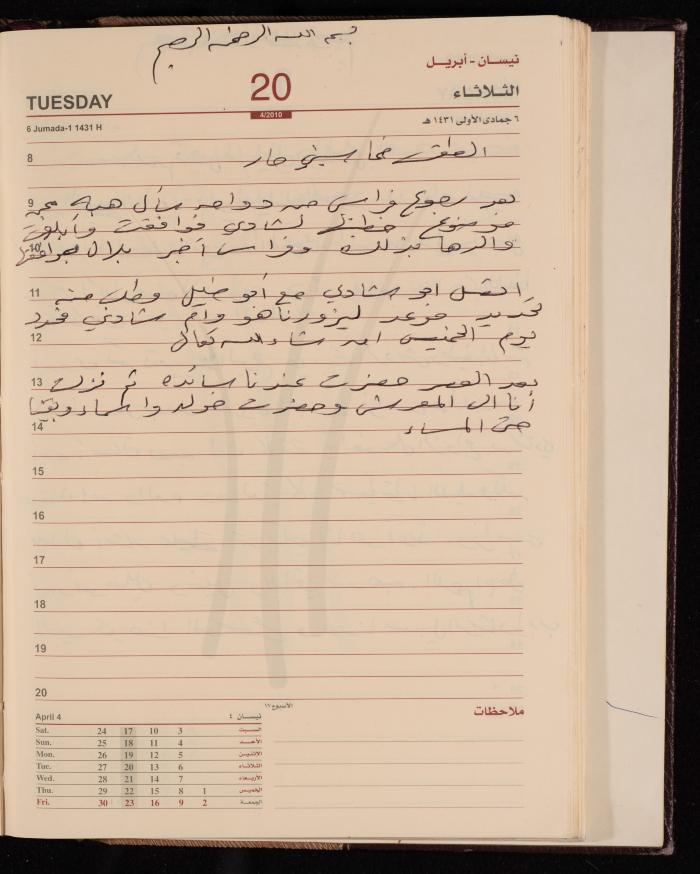 بسم الله الرحمن الرحيم
نيسـان - أبريـل
TUESDAY
20
الثلاثـاء
4/2010
6 Jumada-1 1431 H
٦ جمادى الأولى ١٤٣١ هـ
8
الطقس خماسيني حار
9
بعد رجوع فراس من دوامه سأل هبه عن
موضوع خطبة لشادي فوافقت وأبلغت
10
والدها بذلك وفراس أخبر بلال
11
اتصل ابو شادي مع أبو خليل وطلب منه
تحديد موعد ليزورنا هو وأم شادي فحدد
12
يوم الخميس ان شاء الله تعالى
13
بعد العصر حضرت عندنا سائده ثم نزلت
أنا الى المعرش وحضرت خولد واسماء وبقينا
14
حتى المساء
15
16
17
18
19
20
April 4
نيسـان ٤
الأسبوع ١٧
ملاحظات
Sat. 24 17 10 3 السبت
Sun. 25 18 11 4 الأحـد
Mon. 26 19 12 5 الاثنين
Tue. 27 20 13 6 الثلاثاء
Wed. 28 21 14 7 الأربعاء
Thu. 29 22 15 8 1 الخميس
Fri. 30 23 16 9 2 الجمعة